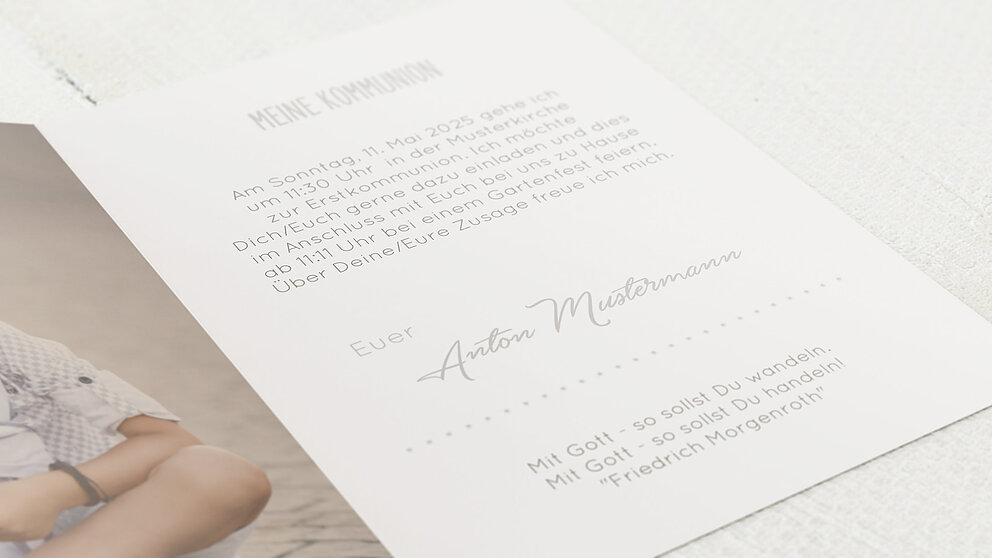 MEINE KOMMUNION
Am Sonntag, 11. Mai 2025 gehe ich
um 11:30 Uhr in der Musterkirche
zur Erstkommunion. Ich möchte
Dich/Euch gerne dazu einladen und dies
im Anschluss mit Euch bei uns zu Hause
ab 11:11 Uhr bei einem Gartenfest feiern.
Über Deine/Eure Zusage freue ich mich.
Euer Anton Mustermann
Mit Gott - so sollst Du wandeln.
Mit Gott - so sollst Du handeln!
"Friedrich Morgenroth"